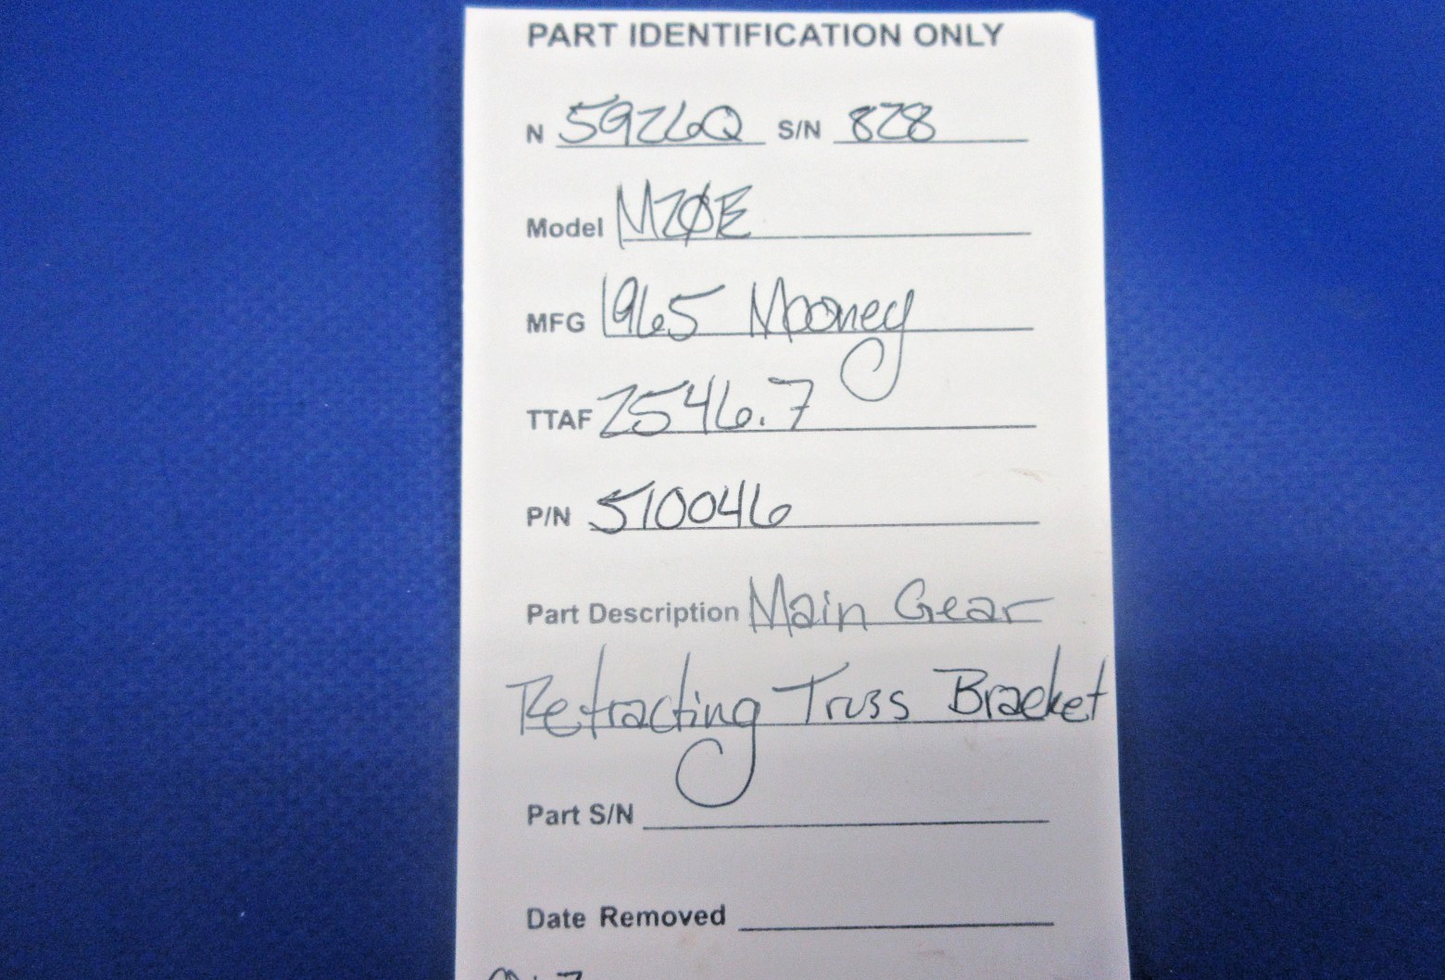 PART IDENTIFICATION ONLY
N 5926Q S/N 828
Model M20E
MFG 1965 Mooney
TTAF 2546.7
P/N 510046
Part Description Main Gear
Retracting Truss Bracket
Part S/N
Date Removed